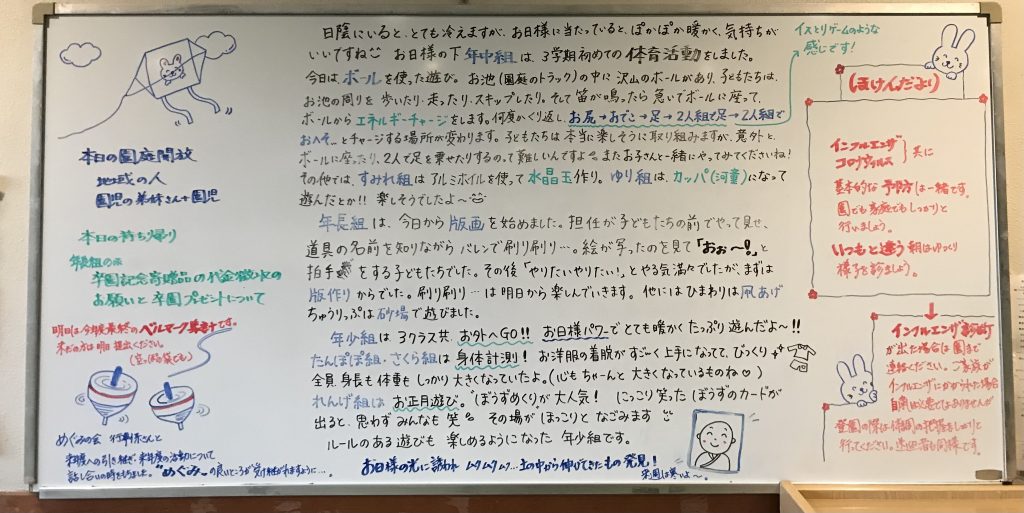 本日の園庭開放
地域の人
園児の弟妹さん+園児
本日の持ち帰り
年長組のみ
卒園記念寄贈品の代金徴収の
お願いと卒園プレゼントについて
明日は今年度最終のベルマーク集計です。
まだの方は明日提出ください。
めぐみの会 行事係さんと
来年度への引き継ぎ・来年度の活動について
話し合いの時をもちました。"めぐみ"の良いところが
日陰にいると、とても冷えますが、お日様に当たっていると、ぽかぽか暖かく、気持ちが
いいですね お日様の下 年中組は、3学期初めての体育活動をしました。
今日は、ボールを使った遊び。お池(園庭のトラック)の中に沢山のボールがあり、子どもたちは、
お池の周りを歩いたり・走ったり・スキップしたり。そして笛が鳴ったら急いでボールに座って、
ボールからエネルギーチャージをします。何度かくり返し、お尻→おでこ→足→2人組で足→2人組で
おへそ…とチャージする場所が変わります。子どもたちは本当に楽しそうに取り組みますが、意外と、
ボールに座ったり、2人で足を乗せたりするのって難しいんですよ。またお子さんと一緒にやってみてくださいね!
その他では、すみれ組はアルミホイルを使って水晶玉作り。ゆり組は、カッパ(河童)になって
遊んだとか!! 楽しそうでしたよ〜
年長組は、今日から版画を始めました。担任が子どもたちの前でやって見せ、
道具の名前を知りながらバレンで刷り刷り…。絵が写ったのを見て「おぉ〜!」と
拍手をする子どもたちでした。その後「やりたいやりたい!」とやる気満々でしたが、まずは
版作りからでした。刷り刷り…は明日から楽しんでいきます。他にはひまわりは凧あげ
ちゅうりっぷは砂場で遊びました。
年少組は3クラス共、お外へGO!! お日様パワーでとても暖かくたっぷり遊んだよ〜!!
たんぽぽ組・さくら組は身体計測! お洋服の着脱がすごーく上手になって、びっくり
全員、身長も体重もしっかり大きくなっていたよ。(心もちゃーんと大きくなっているものね♡)
れんげ組はお正月遊び。"ぼうずめくり"が大人気! にっこり笑ったぼうずのカードが
出ると、思わずみんなも笑 その場がほっこりとなごみます
ルールのある遊びも楽しめるようになった年少組です。
お日様の光に誘われ ムクムクムク…土の中から伸びてきたもの発見!
来週は寒いよ〜。
イストリゲームのような
感じです!
ほけんだより
インフルエンザ
コロナウィルス 共に
基本的な予防方は一緒です。
園でも家庭でもしっかりと
行いましょう。
いつもと違う朝はゆっくり
様子を診ましょう。
インフルエンザ診断
が出た場合は園まで
連絡ください。ご家族が
インフルエンザにかかられた場合
自粛は必要ではありませんが
登園の際は体調の把握をしっかりと
行ってください。送迎者も同様です。